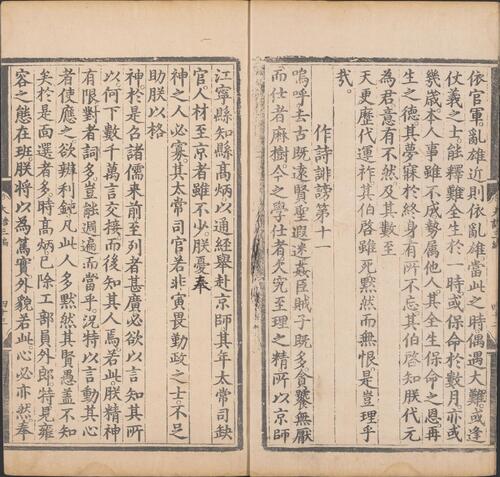 依官軍亂雄近則依亂雄當此之時偶遇大難或逢
仗義之士能釋難全生於一時或保命於數月亦或
幾歲本人事雖不成勢屬他人其全生保命之恩再
生之德其夢寐於終身有所不忘其伯啓知朕代元
為君意有不然及其數至
天更歷代運祚其伯啓雖死黙然而無恨是豈理乎
哉
作詩誹謗第十一
嗚呼去古既遠賢聖遐迷姦臣賊子既多貪饕無厭
而仕者麻樹今之學仕者失究至理之精所以京師
江寧縣知縣髙炳以通經舉赴京師其年太常司缺
官人材至京者雖不少朕憂奉
神之人必寡其太常司官若非寅畏勤政之士不足
助朕以格
神於是召諸儒来前至列者甚廣必欲以言知其所
以何下數千萬言交接而後知其人焉若此朕精神
有限對者詞多豈能週遍而當乎況特以言動其心
者使應之欲辨利鈍凡此人多黙然其賢愚盖不知
矣於是面選者多時髙炳已除工部員外郎特見雍
容之態在班朕將以為篤實外貌若此心必亦然奉